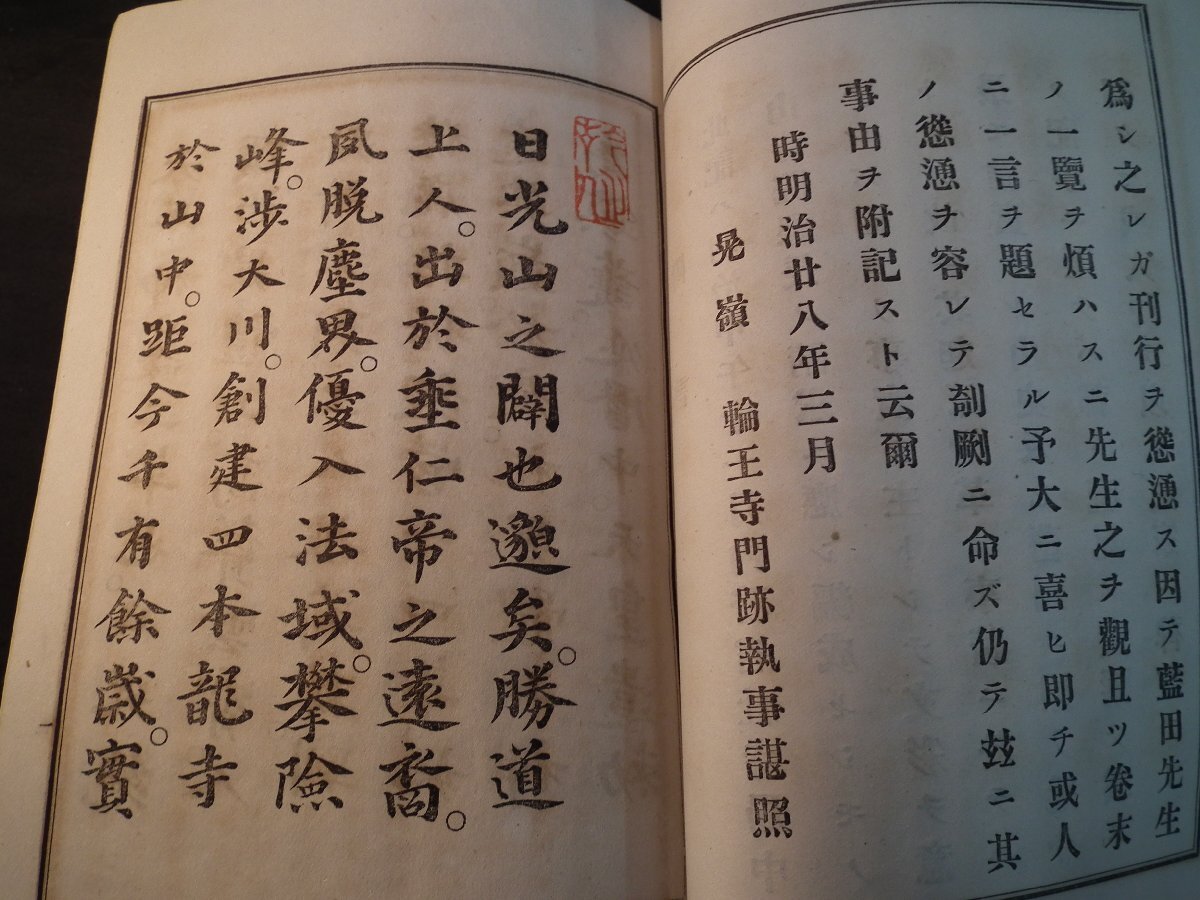 爲シ之レガ刊行ヲ慫慂ス因テ藍田先生
ノ一覽ヲ煩ハスニ先生之ヲ觀且ツ卷末
ニ一言ヲ題セラル予大ニ喜ヒ即チ或人
ノ慫慂ヲ容レテ剞劂ニ命ズ仍テ玆ニ其
事由ヲ附記スト云爾
時明治廿八年三月
晃嶺 輪王寺門跡執事諶照
日光山之闢也邈矣。勝道
上人。出於垂仁帝之遠裔。
夙脱塵界。優入法域。攀險
峰。涉大川。創建四本龍寺
於山中。距今千有餘歲。實